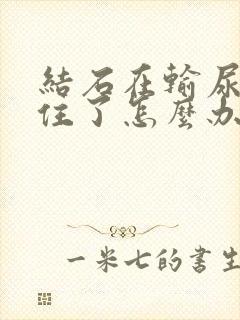 結石在輸尿
住了怎麼办
一米七的書生